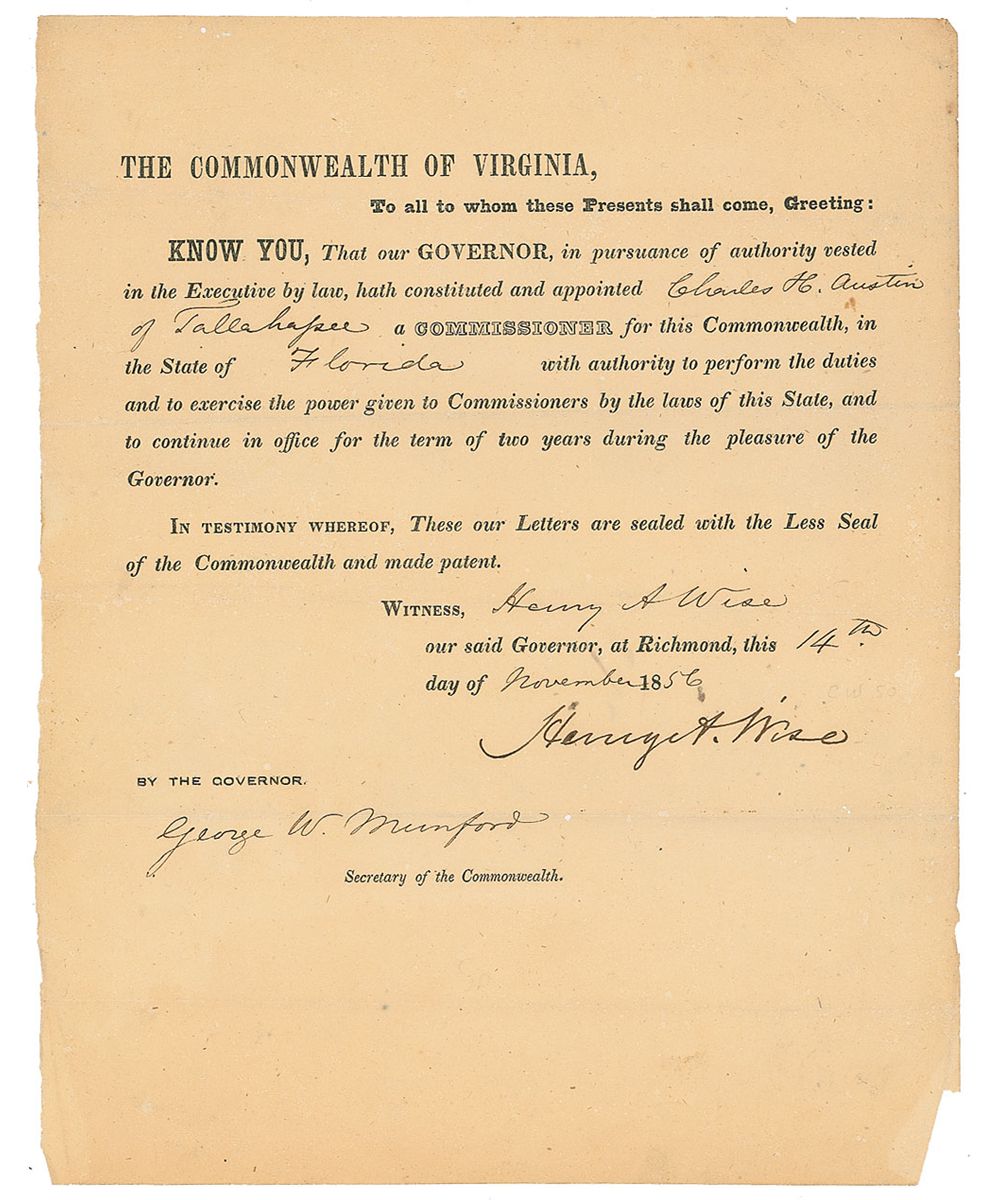 THE COMMONWEALTH OF VIRGINIA,
To all to whom these Presents shall come, Greeting:
KNOW YOU, That our GOVERNOR, in pursuance of authority vested
in the Executive by law, hath constituted and appointed Charles H. Austin
of Tallahassee a COMMISSIONER for this Commonwealth, in
the State of Florida with authority to perform the duties
and to exercise the power given to Commissioners by the laws of this State, and
to continue in office for the term of two years during the pleasure of the
Governor.
IN TESTIMONY WHEREOF, These our Letters are sealed with the Less Seal
of the Commonwealth and made patent.
WITNESS, Henry A Wise
our said Governor, at Richmond, this 14th.
day of November 1856
CW 50
Henry A. Wise
BY THE GOVERNOR.
George W. Munford
Secretary of the Commonwealth.